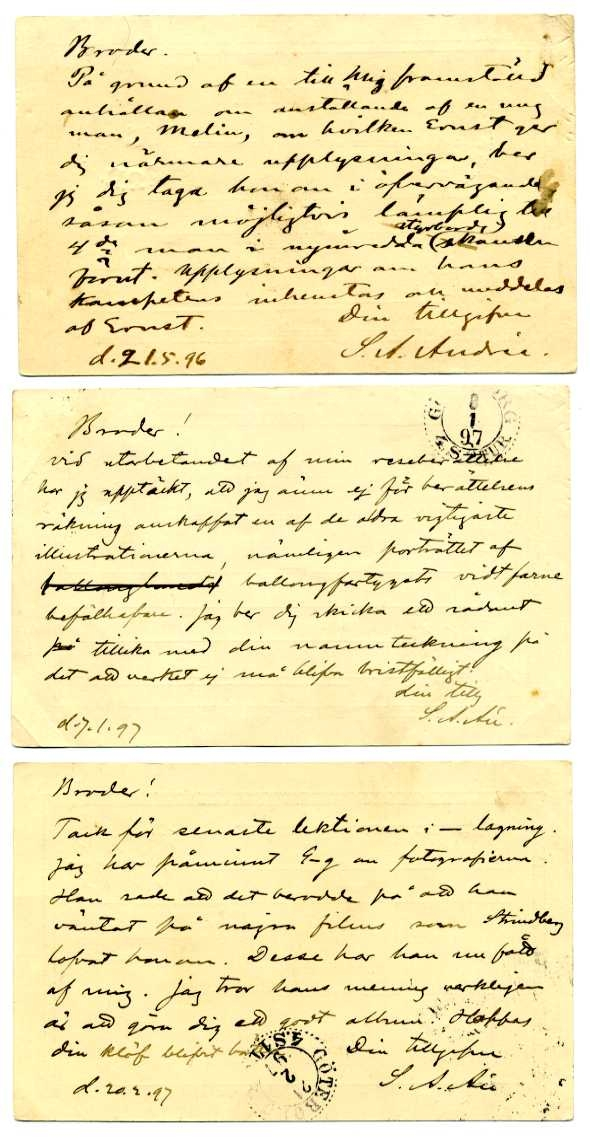 Broder.
På grund af en till mig framställd
anhållan om anställande af en ung
man, Melin, om hvilken Ernst ger
dig närmare upplysningar, ber
jg dig taga honom i öfvervägande
såsom möjligtvis lämplig till
4de man i nymredda (styrbords) skansen
förut. Upplysningar om hans
kompetens inhemtas och meddelas
af Ernst.
Din tillgifne
d. 21.5.96
S. A. Andrée.
8
1
97
Broder!
Vid utarbetandet af min reseberättelse
har jg upptäckt, att jag ännu ej för berättelsens
räkning anskaffat en af de allra vigtigaste
illustrationerna, nämligen porträttet af
ballongfartygets vidtfarne
befälhafvare. Jag ber dig skicka ett sådant
på tillika med din namnteckning på
det att verket ej må blifva bristfälligt.
din tillg
S. A. Aée.
d. 7.1.97
Broder!
Tack för senaste lektionen i — lagning.
Jag har påmint E-g om fotografierna.
Han sade att det berodde på att han
väntat på några films som Strindberg
lofvat honom. Desse har han nu fått
af mig. Jag tror hans mening verkligen
är att göra dig ett godt album. Hoppas
din klöf blifvit
Din tillgifne
S. A. Aée
d. 20.2.97
GÖTEB